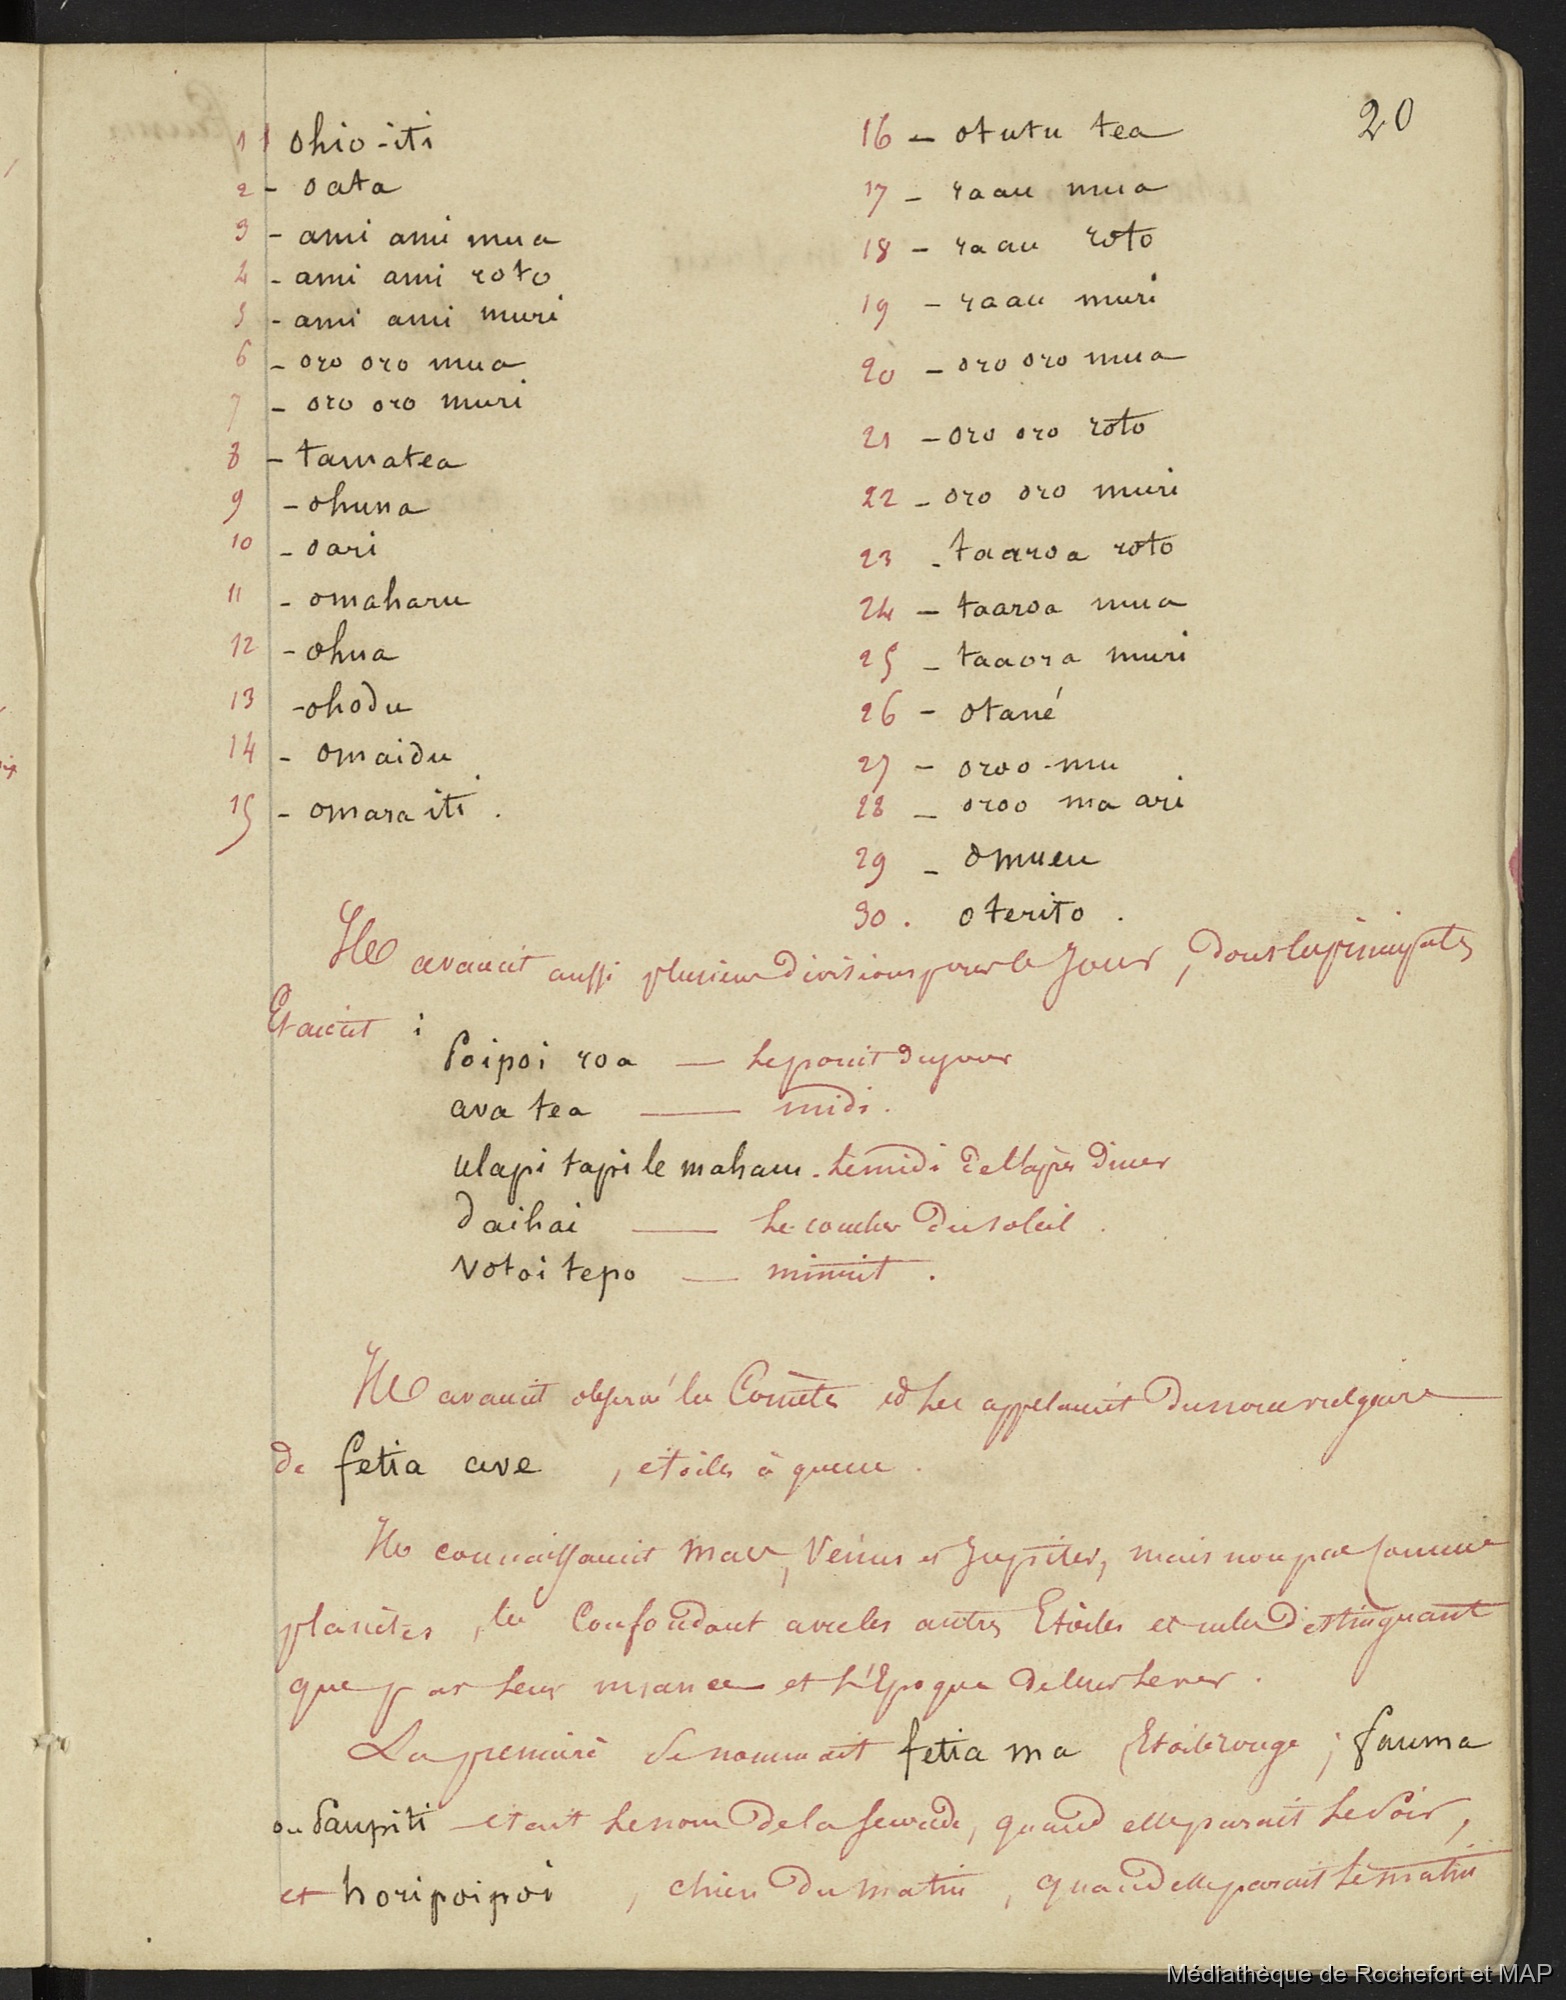 20
1 ohio-iti
2 - oata
3 - ami ami mua
4 - ami ami roto
5 - ami ami muri
6 - oro oro mua
7 - oro oro muri
8 - tamatea
9 - ohuna
10 - oari
11 - omaharu
12 - ohua
13 - ohodu
14 - omaidu
15 - omara iti .
16 - otutu tea
17 - raau mua
18 - raau roto
19 - raau muri
20 - oro oro mua
21 - oro oro roto
22 - oro oro muri
23 - taaroa roto
24 - taaroa mua
25 - taaora muri
26 - otané
27 - oroo-mu
28 - oroo ma ari
29 - omueu
30 . oterito .
Ils avaient aussi plusieurs divisions pour le Jour, dont les principales
Etaient :
Poipoi roa — le point du jour
ava tea — midi.
ulapi tapi le mahau - le midi de l'après diner
daihai — Le coucher du soleil .
Votoi tepo — minuit .
Ils avaient observé les Comètes et les appelaient du nom vulgaire
de fetia ave , étoiles à queue .
Ils connaissaient Mars, Vénus et Jupiter, mais non pas comme
planètes, les Confondant avec les autres Etoiles et ne les distinguant
que par leur nuance et l'Epoque de leur lever .
La première se nommait fetia ma Etoile rouge ; fauma
ou Paupiti était le nom de la seconde, quand elle parait le soir,
et horipoipoi , chien du matin , quand elle parait le matin
Médiathèque de Rochefort et MAP